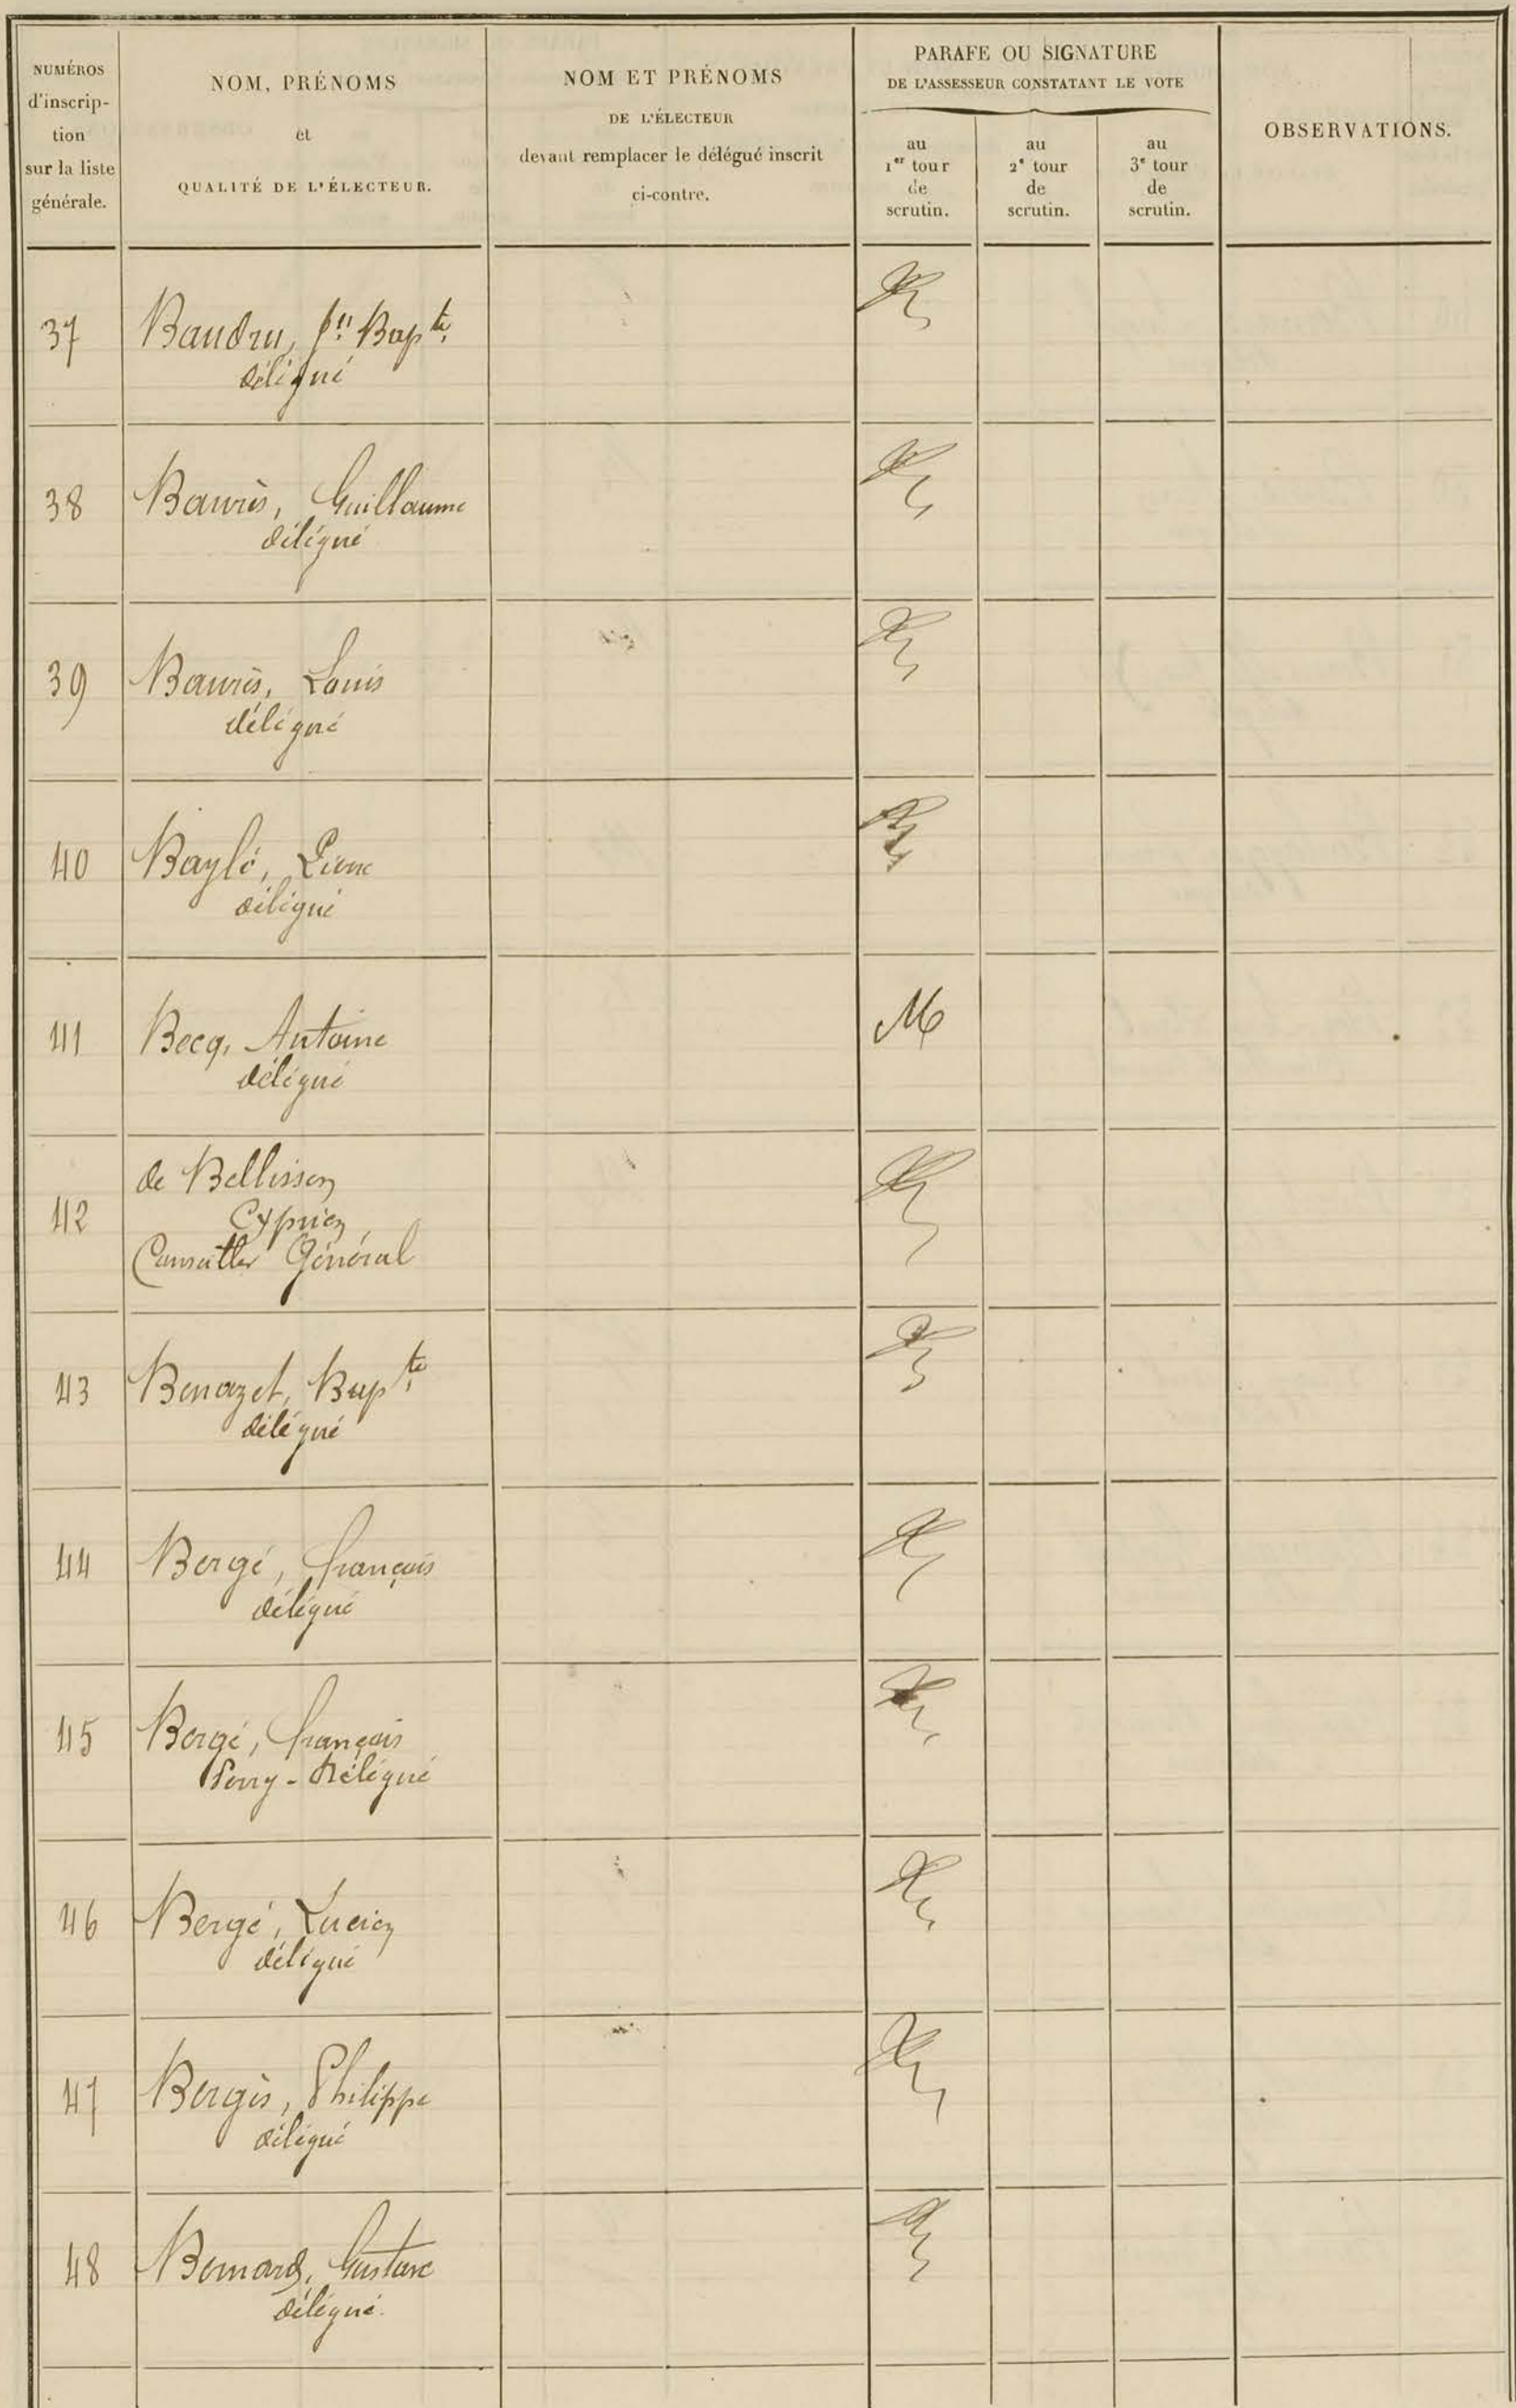 NUMÉROS
d'inscrip-
tion
sur la liste
générale.
NOM, PRÉNOMS
et
QUALITÉ DE L'ÉLECTEUR.
NOM ET PRÉNOMS
DE L'ÉLECTEUR
devant remplacer le délégué inscrit
ci-contre.
PARAFE OU SIGNATURE
DE L'ASSESSEUR CONSTATANT LE VOTE
au
1er tour
de
scrutin.
au
2e tour
de
scrutin.
au
3e tour
de
scrutin.
OBSERVATIONS.
37 Baudru, Bapte
délégué
38 Baurès, Guillaume
délégué
39 Baurès, Louis
délégué
40 Baylé, Pierre
délégué
41 Becq, Antoine
délégué
de Bellissen
42 Cyprien
Conseiller Général
43 Benazet, Bapte
délégué
44 Bergé, François
délégué
45 Bergé, François
Délégué
46 Bergé, Lucien
délégué
47 Bergès, Philippe
délégué
48 Bernard, Gustave
délégué.